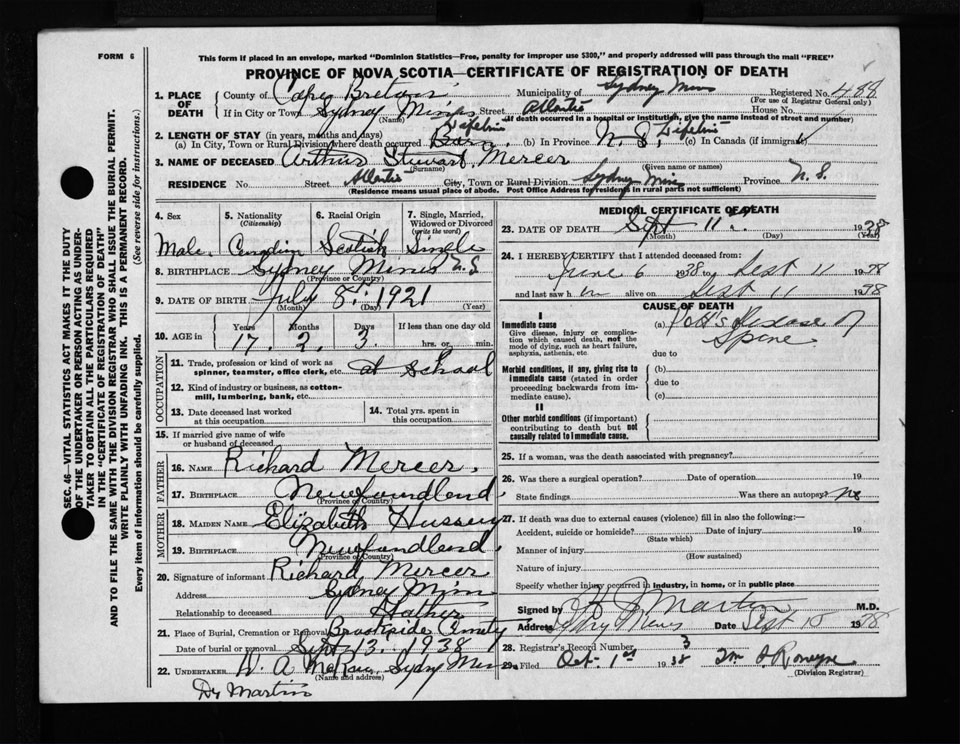 FORM 6
This form if placed in an envelope, marked "Dominion Statistics—Free, penalty for improper use $300," and properly addressed will pass through the mail "FREE"
PROVINCE OF NOVA SCOTIA—CERTIFICATE OF REGISTRATION OF DEATH
SEC. 46—VITAL STATISTICS ACT MAKES IT THE DUTY
OF THE UNDERTAKER OR PERSON ACTING AS UNDER-
TAKER TO OBTAIN ALL THE PARTICULARS REQUIRED
IN THE "CERTIFICATE OF REGISTRATION OF DEATH"
AND TO FILE THE SAME WITH THE DIVISION REGISTRAR WHO SHALL ISSUE THE BURIAL PERMIT.
WRITE PLAINLY WITH UNFADING INK. THIS IS A PERMANENT RECORD.
Every item of information should be carefully supplied. (See reverse side for instructions.)
1. PLACE OF DEATH County of Cape Breton Municipality of Sydney Mines Registered No. 488
(For use of Registrar General only)
If in City or Town Sydney Mines Street Atlantic House No.
(Name) (If death occurred in a hospital or institution, give the name instead of street and number)
2. LENGTH OF STAY (in years, months and days)
(a) In City, Town or Rural Division where death occurred Lifetime (b) In Province N.S. Lifetime (c) In Canada (if immigrant)
3. NAME OF DECEASED Arthur Stewart Mercer
(Surname) (Given name or names)
RESIDENCE No. Street Atlantic City, Town or Rural Division Sydney Mines Province N.S.
(Residence means usual place of abode. Post Office Address for residents in rural parts not sufficient)
4. Sex Male
5. Nationality (Citizenship) Canadian
6. Racial Origin Scotish
7. Single, Married, Widowed or Divorced (write the word) Single
8. BIRTHPLACE Sydney Mines N.S
(Province or Country)
9. DATE OF BIRTH July 8. 1921
(Month) (Day) (Year)
10. AGE in Years Months Days If less than one day old
17. 2. 3. hrs. or min.
OCCUPATION
11. Trade, profession or kind of work as spinner, teamster, office clerk, etc. at School
12. Kind of industry or business, as cotton-mill, lumbering, bank, etc.
13. Date deceased last worked at this occupation
14. Total yrs. spent in this occupation
15. If married give name of wife or husband of deceased
FATHER
16. NAME Richard Mercer.
17. BIRTHPLACE Newfoundland.
(Province or Country)
MOTHER
18. MAIDEN NAME Elizabeth Hussey
19. BIRTHPLACE Newfundland.
(Province or Country)
20. Signature of informant Richard Mercer
Address Sydney Mines
Relationship to deceased Father
21. Place of Burial, Cremation or Removal Brookside Cemetery
Date of burial or removal Sept 13. 1938
22. UNDERTAKER W. A McKay, Sydney Mines
(Name and address)
Dr Martin
MEDICAL CERTIFICATE OF DEATH
23. DATE OF DEATH Sept 11th 1938
(Month) (Day) (Year)
24. I HEREBY CERTIFY that I attended deceased from:
June 6 1938 to Sept 11 1938
and last saw him alive on Sept 11 1938
CAUSE OF DEATH
I
Immediate cause
Give disease, injury or complication which caused death, not the mode of dying, such as heart failure, asphyxia, asthenia, etc
(a) Pott's Disease of Spine
due to
Morbid conditions, if any, giving rise to immediate cause (stated in order proceeding backwards from immediate cause).
(b)
due to
(c)
II
Other morbid conditions (if important) contributing to death but not causally related to immediate cause.
25. If a woman, was the death associated with pregnancy?
26. Was there a surgical operation? Date of operation 19
State findings Was there an autopsy? no
27. If death was due to external causes (violence) fill in also the following:—
Accident, suicide or homicide? Date of injury 19
(State which)
Manner of injury
(How sustained)
Nature of injury
Specify whether injury occurred in industry, in home, or in public place
Signed by Martin M.D.
Address Sydney Mines Date Sept 15 1938
28. Registrar's Record Number 3
29. Filed Oct. 1st 1938
(Division Registrar)